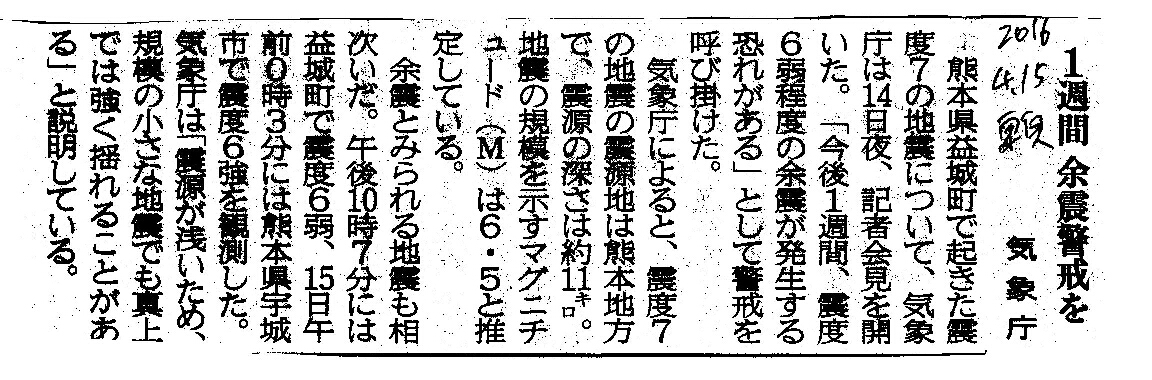 1週間 余震警戒を
気象庁
2016
4.15
熊本県益城町で起きた震
度7の地震について、気象
庁は14日夜、記者会見を開
いた。「今後1週間、震度
6弱程度の余震が発生する
恐れがある」として警戒を
呼び掛けた。
気象庁によると、震度7
の地震の震源地は熊本地方
で、震源の深さは約11㌔。
地震の規模を示すマグニチ
ュード(M)は6・5と推
定している。
余震とみられる地震も相
次いだ。午後10時7分には
益城町で震度6弱、15日午
前0時3分には熊本県宇城
市で震度6強を観測した。
気象庁は「震源が浅いため、
規模の小さな地震でも真上
では強く揺れることがあ
る」と説明している。